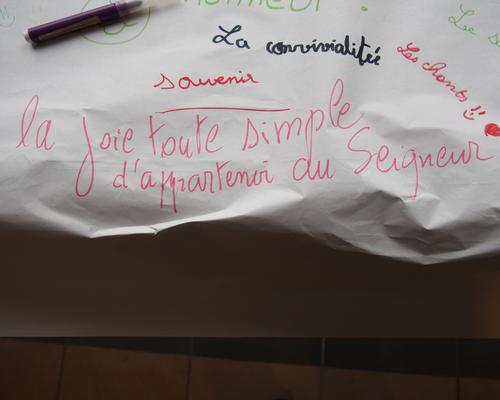 La convivialitée
Les chants !!
souvenir
la joie toute simple
d'appartenir au Seigneur